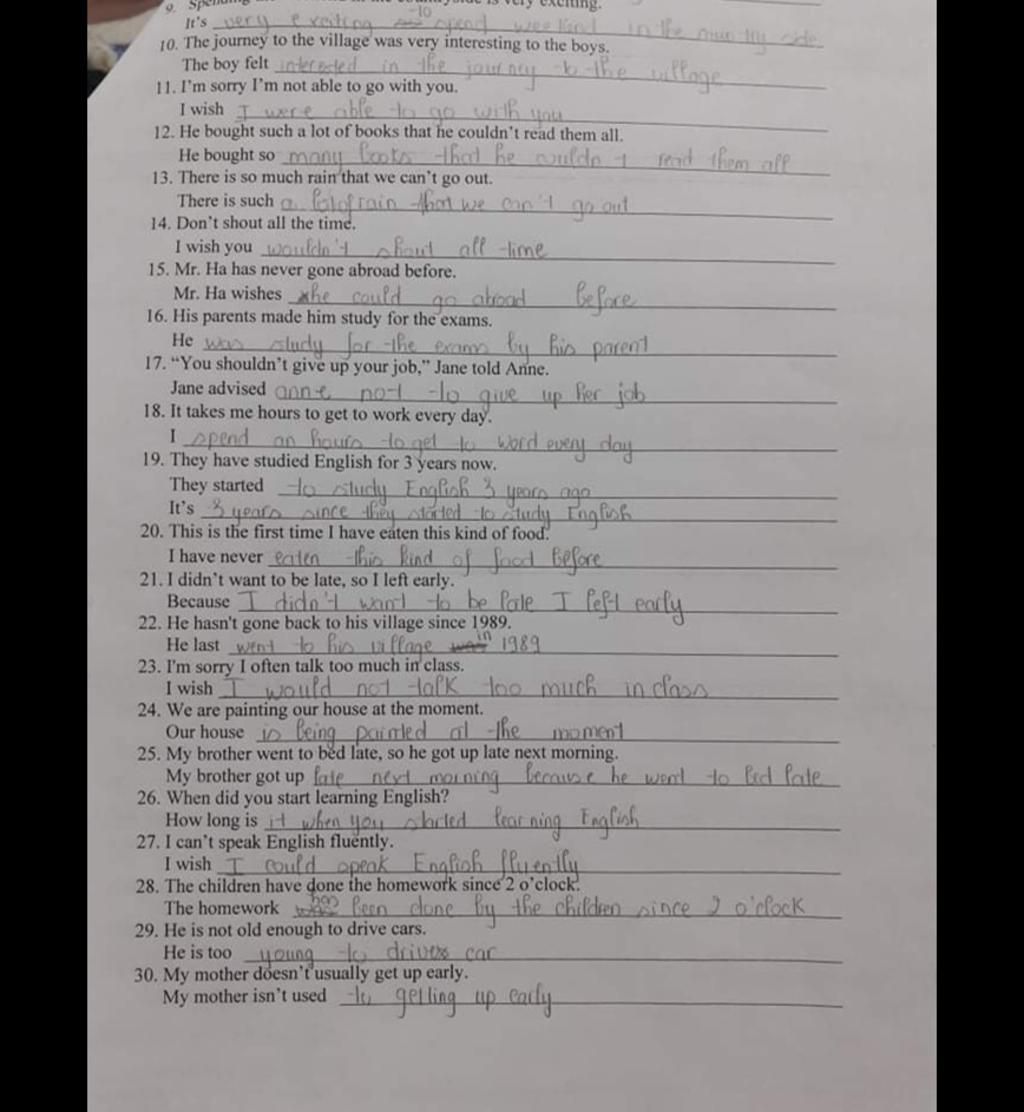 9. Spending the weekend in the countryside is very exciting.
It's very exciting to spend weekend in the country side
10. The journey to the village was very interesting to the boys.
The boy felt interested in the journey to the village
11. I'm sorry I'm not able to go with you.
I wish I were able to go with you
12. He bought such a lot of books that he couldn't read them all.
He bought so many books that he couldn't read them all
13. There is so much rain that we can't go out.
There is such a lot of rain that we can't go out
14. Don't shout all the time.
I wish you wouldn't shout all time
15. Mr. Ha has never gone abroad before.
Mr. Ha wishes he could go abroad before
16. His parents made him study for the exams.
He was study for the exams by his parent
17. “You shouldn't give up your job,” Jane told Anne.
Jane advised anne not to give up her job
18. It takes me hours to get to work every day.
I spend an hours to get to word every day
19. They have studied English for 3 years now.
They started to study English 3 years ago
It's 3 years since they started to study English
20. This is the first time I have eaten this kind of food.
I have never eaten this kind of food before
21. I didn't want to be late, so I left early.
Because I didn't want to be late I left early
22. He hasn't gone back to his village since 1989.
He last went to his village in 1989
23. I'm sorry I often talk too much in class.
I wish I would not talk too much in class
24. We are painting our house at the moment.
Our house is being painted at the moment
25. My brother went to bed late, so he got up late next morning.
My brother got up late next morning because he went to bed late
26. When did you start learning English?
How long is it when you started learning English
27. I can't speak English fluently.
I wish I could speak English fluently
28. The children have done the homework since 2 o'clock.
The homework has been done by the children since 2 o'clock
29. He is not old enough to drive cars.
He is too young to drivers car
30. My mother doesn't usually get up early.
My mother isn't used to getting up early